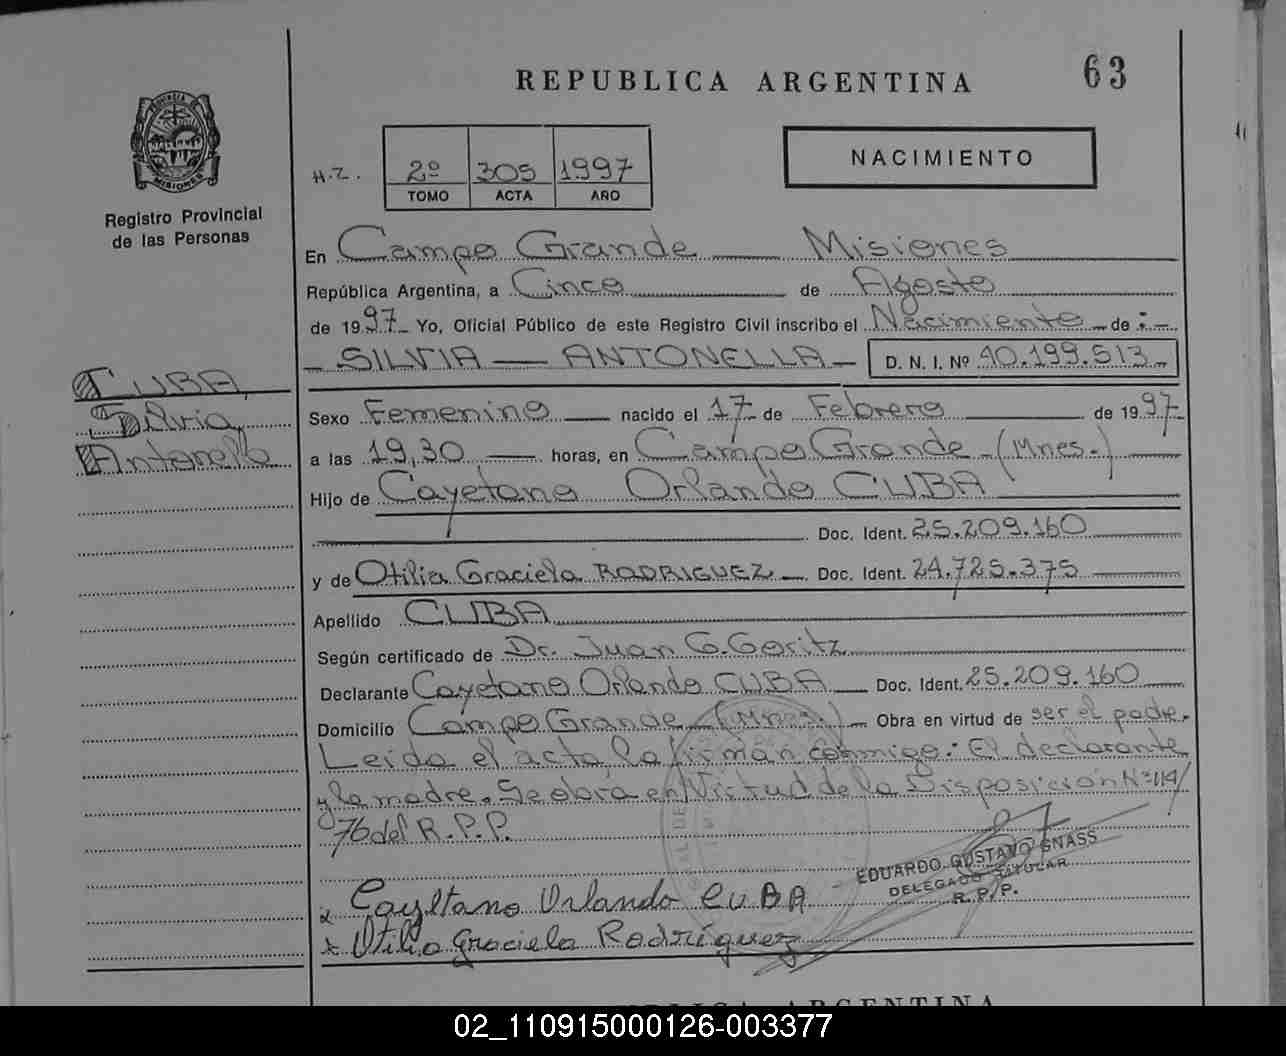 REPUBLICA ARGENTINA
63
PROVINCIA DE
MISIONES
Registro Provincial
de las Personas
H.Z.
2º 305 1997
TOMO ACTA AÑO
NACIMIENTO
En Campo Grande Misiones
República Argentina, a Cinco de Agosto
de 1997 Yo, Oficial Público de este Registro Civil inscribo el Nacimiento de :
SILVIA ANTONELLA D. N. I. Nº 40.199.513
CUBA
Silvia
Antonella
Sexo Femenino nacido el 17 de Febrero de 1997
a las 19,30 horas, en Campo Grande (Mnes.)
Hijo de Cayetano Orlando CUBA
Doc. Ident. 25.209.160
y de Otilia Graciela RODRIGUEZ Doc. Ident. 24.725.375
Apellido CUBA
Según certificado de Dr. Juan G. Goritz
Declarante Cayetano Orlando CUBA Doc. Ident. 25.209.160
Domicilio Campo Grande (Mnes.) Obra en virtud de ser el padre.
Leida el acta, la firman conmigo: El declarante
y la madre. Se obra en Virtud de la Disposición Nº 114/
76 del R.P.P.
EDUARDO GUSTAVO GNASS
DELEGADO TITULAR
R.P.P.
x Cayetano Orlando CUBA
x Otilia Graciela Rodríguez
REPUBLICA ARGENTINA
02_110915000126-003377